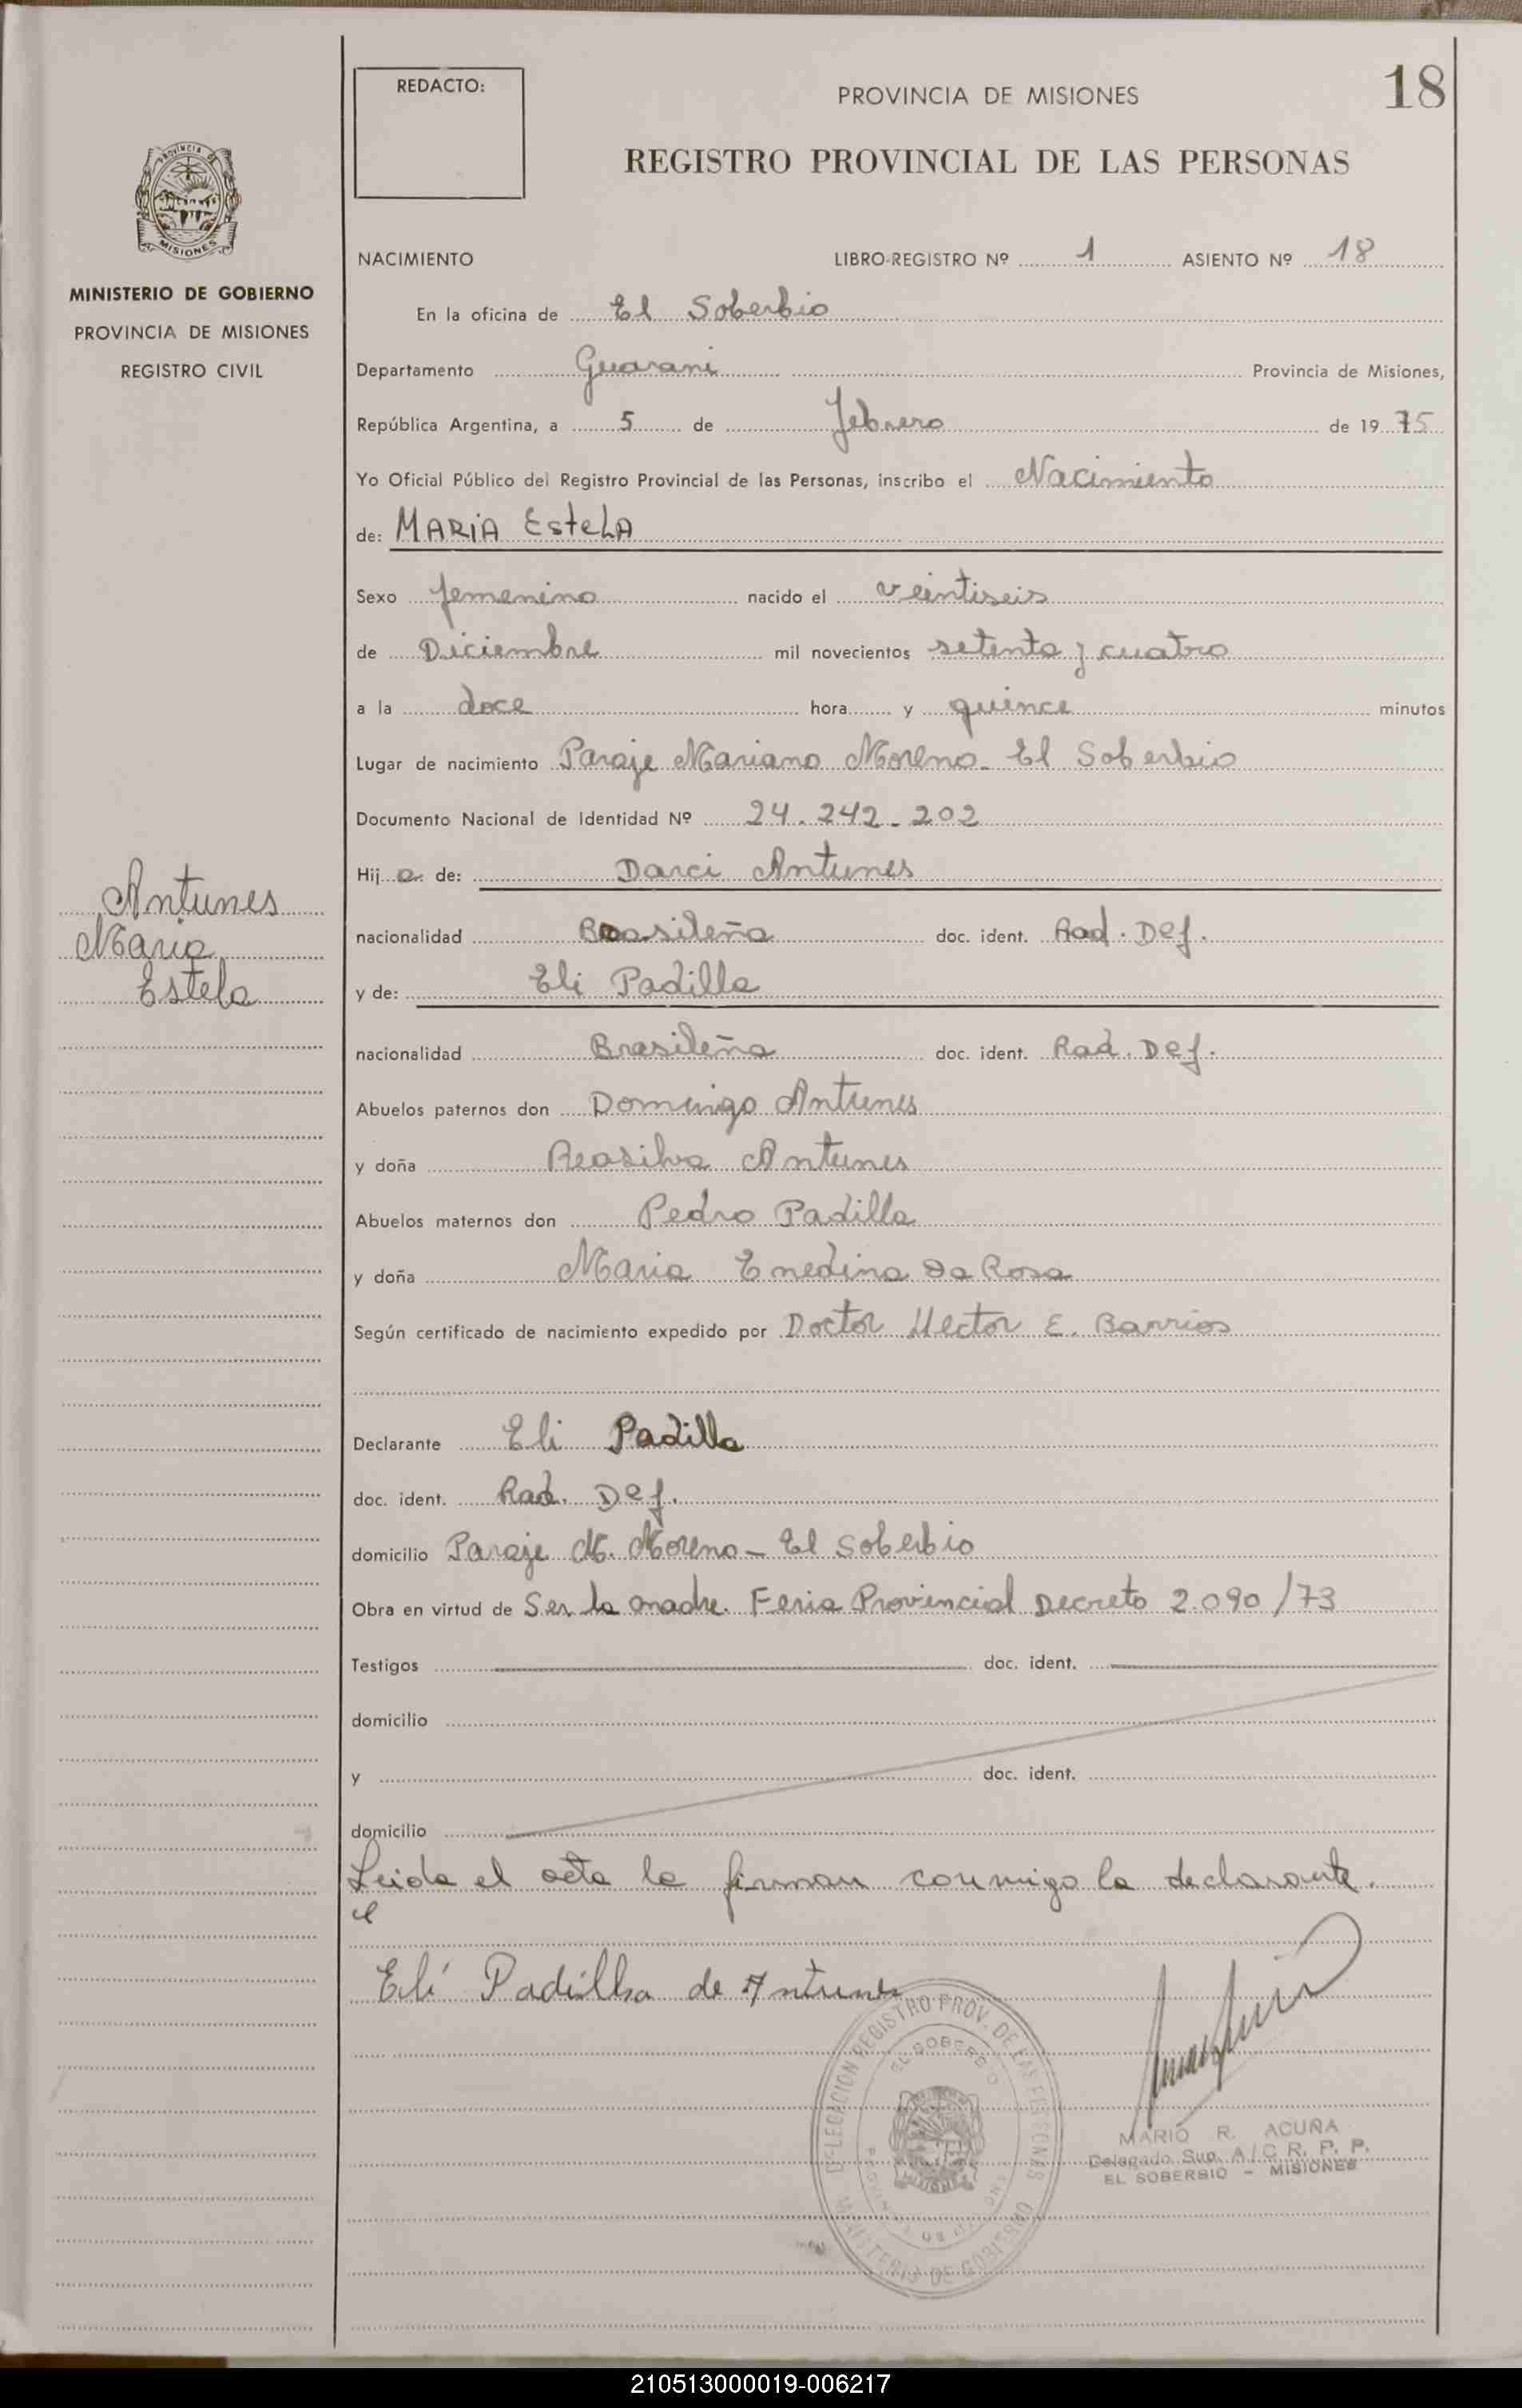 18
REDACTO:
PROVINCIA DE MISIONES
REGISTRO PROVINCIAL DE LAS PERSONAS
PROVINCIA DE
MISIONES
MINISTERIO DE GOBIERNO
PROVINCIA DE MISIONES
REGISTRO CIVIL
NACIMIENTO LIBRO-REGISTRO Nº 1 ASIENTO Nº 18
En la oficina de El Soberbio
Departamento Guarani Provincia de Misiones,
República Argentina, a 5 de febrero de 1975
Yo Oficial Público del Registro Provincial de las Personas, inscribo el Nacimiento
de: MARIA EsteLA
Sexo femenino nacido el veintiseis
de Diciembre mil novecientos setenta y cuatro
a la doce hora y quince minutos
Lugar de nacimiento Paraje Mariano Moreno - El Soberbio
Documento Nacional de Identidad Nº 24.242-202
Hija de: Darci Antunes
Antunes
Maria
Estela
nacionalidad Brasileña doc. ident. Rad. Def.
y de: Eli Padilla
nacionalidad Brasileña doc. ident. Rad. Def.
Abuelos paternos don Domingo Antunes
y doña Antunes
Abuelos maternos don Pedro Padilla
y doña Maria Enedina Da Rosa
Según certificado de nacimiento expedido por Doctor Hector E. Barrios
Declarante Eli Padilla
doc. ident. Rad. Def.
domicilio Paraje M. Moreno - El Soberbio
Obra en virtud de Ser la madre. Feria Provincial Decreto 2.090/73
Testigos doc. ident.
domicilio
y doc. ident.
domicilio
Leida el acta la firman conmigo la declarante.
Elí Padilha de Antunes
DELEGACION REGISTRO PROV. DE LAS PERSONAS
EL SOBERBIO
MINISTERIO DE GOBIERNO
MARIO R. ACUÑA
Delegado Sup. A/C R. P. P.
EL SOBERBIO - MISIONES
210513000019-006217